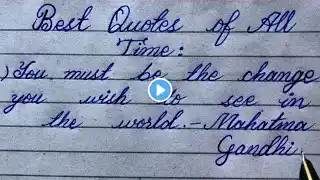 Best Quotes of All
Time:
) You must be the change
you wish to see in
the world.-Mahatma
Gandhi